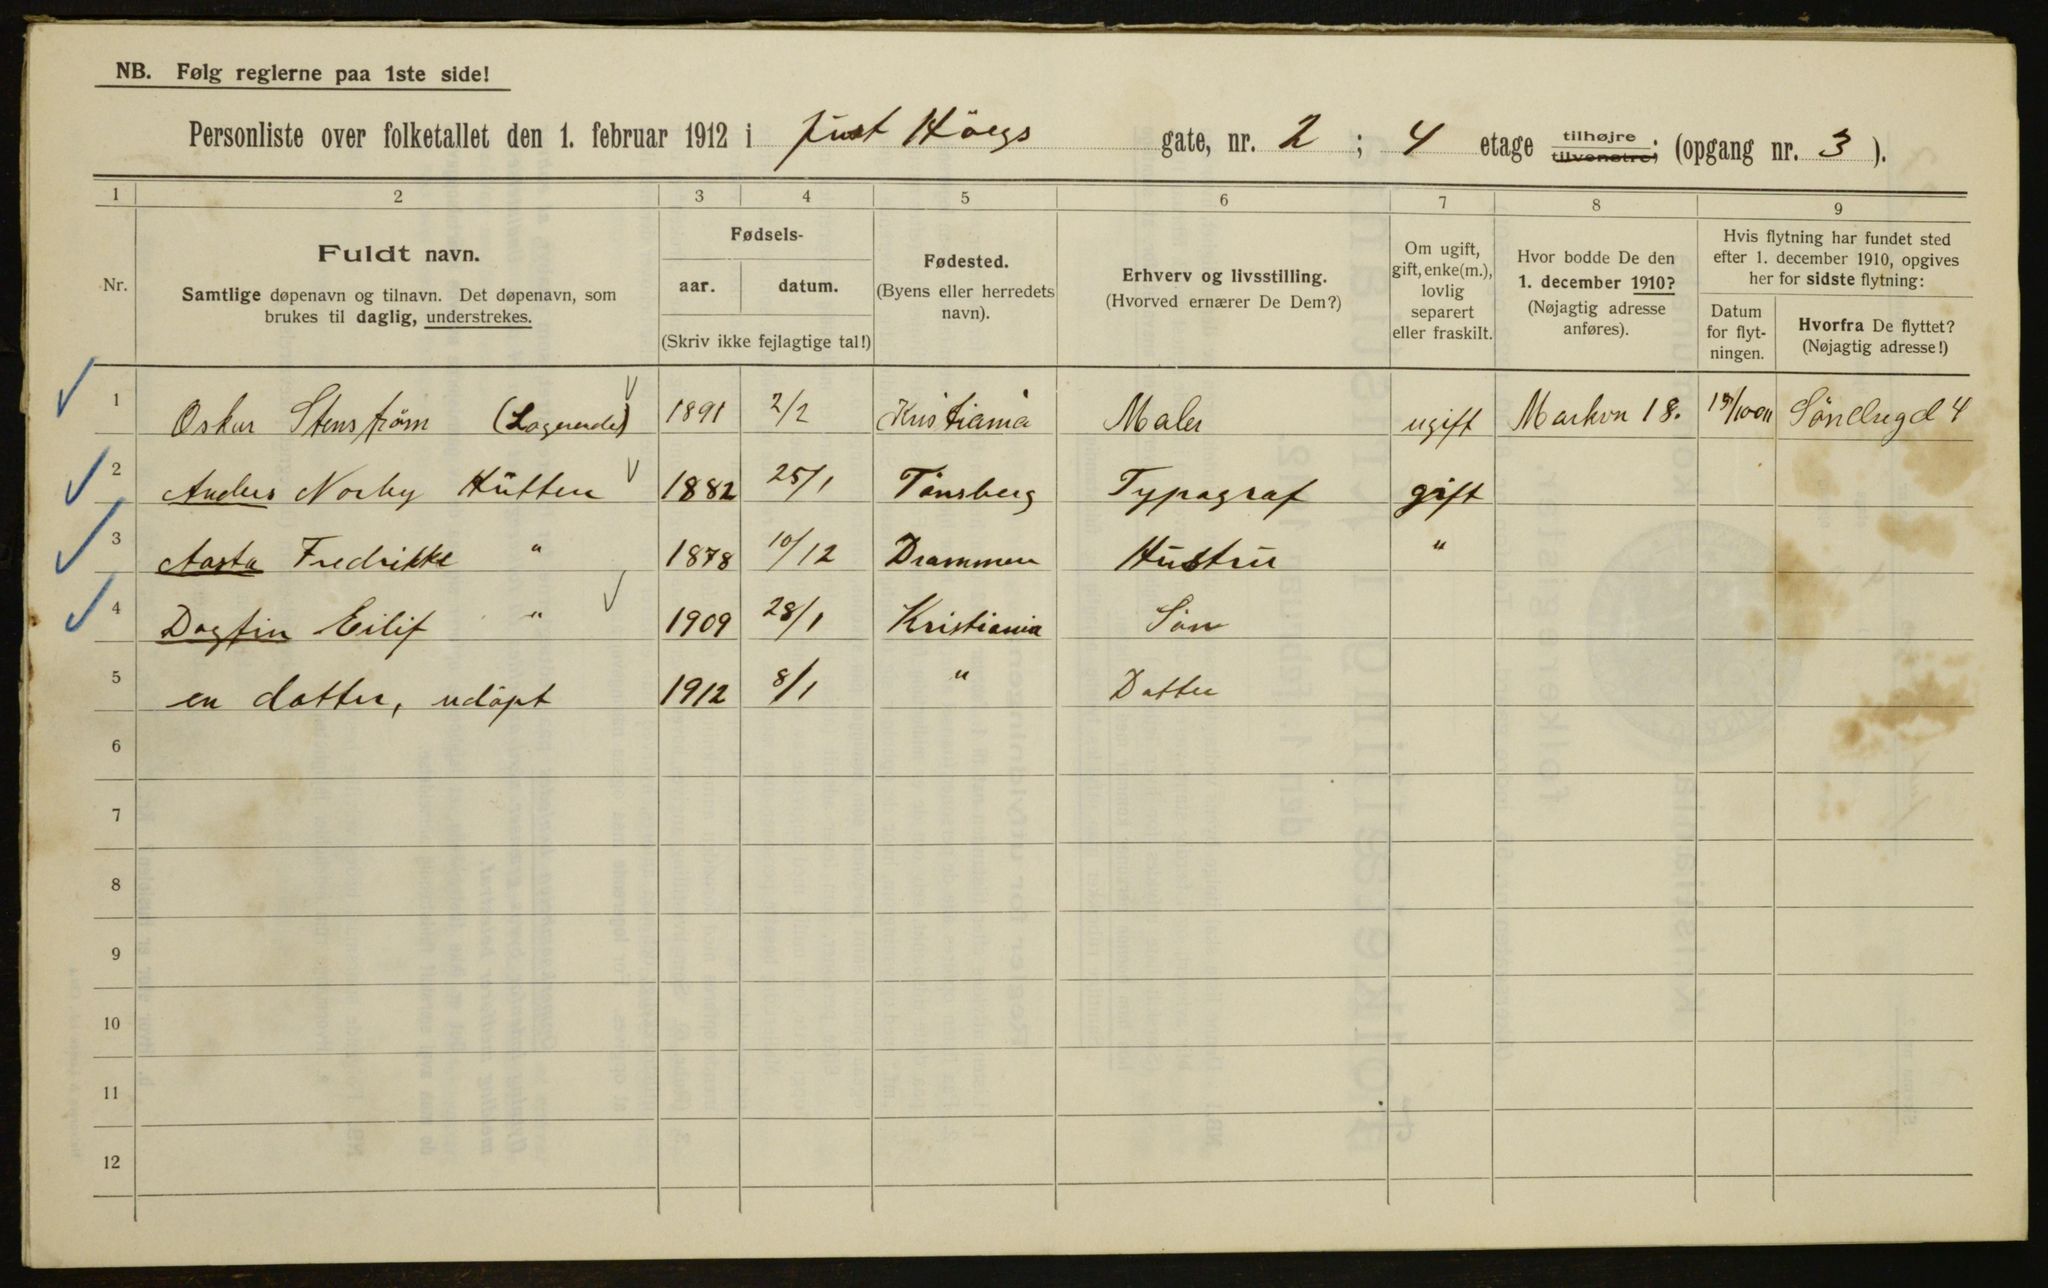 NB. Følg reglerne paa 1ste side!
Personliste over folketallet den 1. februar 1912 i Just Höegs gate, nr. 2 ; 4 etage tilhøjre tilvenstre; (opgang nr. 3 ).
1 2 3 4 5 6 7 8 9
Nr.
Fuldt navn.
Samtlige døpenavn og tilnavn. Det døpenavn, som
brukes til daglig, understrekes.
Fødsels-
aar. datum.
(Skriv ikke fejlagtige tal!)
Fødested.
(Byens eller herredets
navn).
Erhverv og livsstilling.
(Hvorved ernærer De Dem?)
Om ugift,
gift, enke(m.),
lovlig
separert
eller fraskilt.
Hvor bodde De den
1. december 1910?
(Nøjagtig adresse
anføres).
Hvis flytning har fundet sted
efter 1. december 1910, opgives
her for sidste flytning:
Datum
for flyt-
ningen.
Hvorfra De flyttet?
(Nøjagtig adresse!)
1 Oskar Stenstrøm (Logerende) 1891 2/2 Kristiania Maler ugift Markvn 18. Söndregd 4
2 Anders Norby Hütten 1882 25/1 Tönsberg Typograf gift
3 Aasta Fredrikke " 1878 10/12 Drammen Hustru "
4 Dagfin Eilif " 1909 28/1 Kristiania Sön
5 en datter, udöpt 1912 8/1 " Datter
6
7
8
9
10
11
12